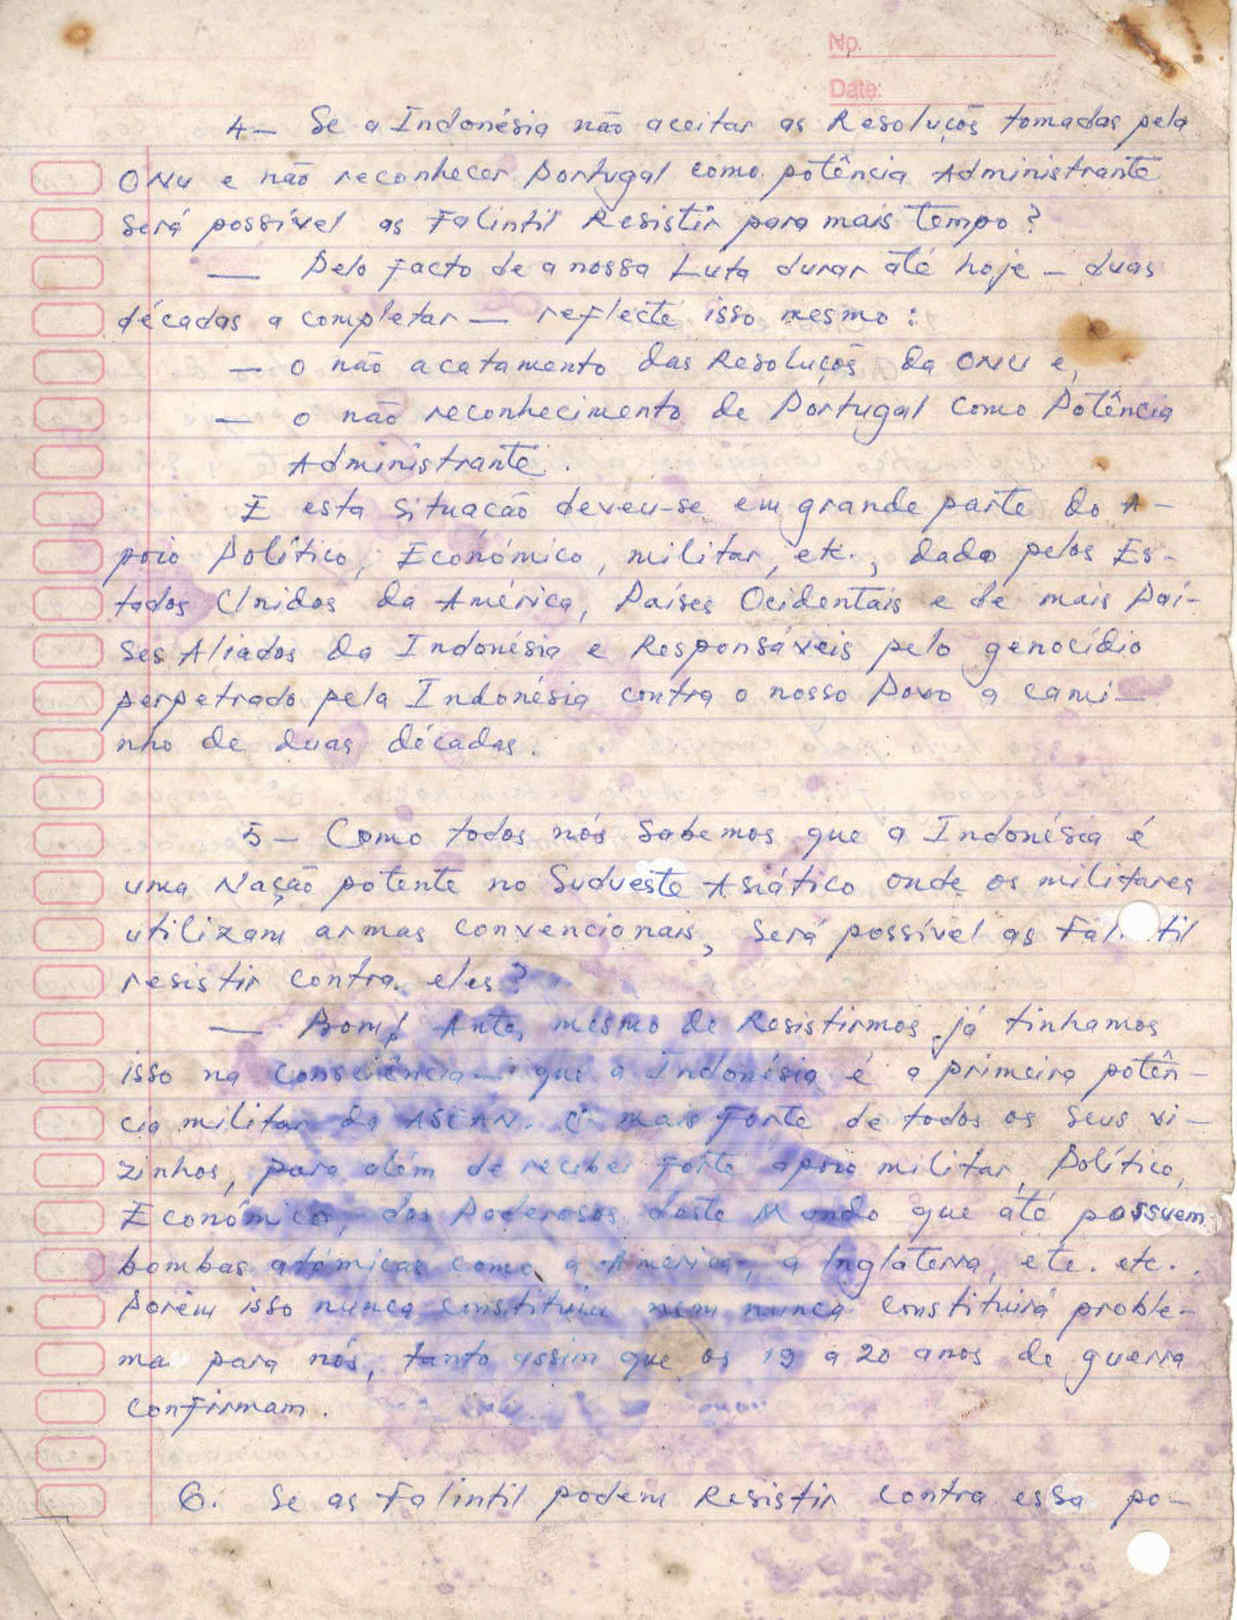 No.
Date:
4- Se a Indonésia não aceitar as Resoluçõs tomadas pela
ONU e não reconhecer Portugal como potência Administrante
será possível as Falintil Resistir para mais tempo?
— Pelo facto de a nossa Luta durar até hoje - duas
décadas a completar — reflecte isso mesmo:
— o não acatamento das Resoluçõs da ONU e,
— o não reconhecimento de Portugal como Potência
Administrante.
E esta situação deveu-se em grande parte do A-
poio Político, Económico, militar, etc., dado pelos Es-
tados Unidos da América, Países Ocidentais e de mais Paí-
ses Aliados da Indonésia e Responsáveis pelo genocídio
perpetrado pela Indonésia contra o nosso Povo a cami-
nho de duas décadas.
5- Como todos nós sabemos que a Indonésia é
uma Nação potente no Sudueste Asiático onde os militares
utilizam armas convencionais, será possível as Fal til
resistir contra eles?
— Bom! Antes mesmo de Resistirmos já tinhamos
isso na consciência - que a Indonésia é a primeira potên-
cia militar da ASEAN. O mais forte de todos os seus vi-
zinhos, para além de receber forte apoio militar, Político,
Económico, dos Poderosos deste Mundo que até possuem
bombas atómicas como a América, a Inglaterra, etc. etc..
Porém isso nunca constituiu nem nunca constituirá proble-
ma para nós, tanto assim que os 19 a 20 anos de guerra
confirmam.
6. Se as Falintil podem Resistir contra essa po-